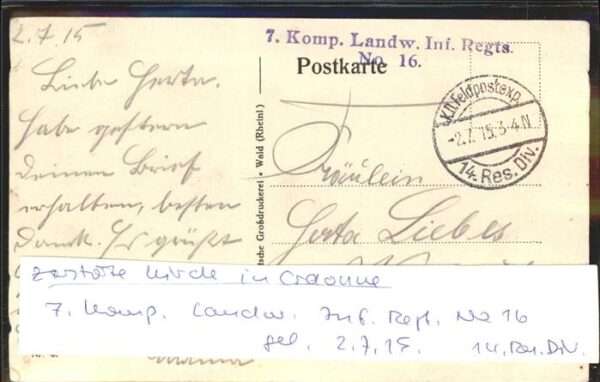 2.7.15
Liebe Herta.
Habe gestern
deinen Brief
erhalten, besten
Dank. Es grüßt
7. Komp. Landw. Inf. Regts.
No. 16.
Postkarte
K.D. Feldpostexp.
-2.7.15.3-4N
14. Res. Div.
tische Großdruckerei • Wald (Rheinl)
Fräulein
Herta Liebes
zerstöte Kirche in Craonne
7. Komp. Landw. Inf. Regt. No 16
gel. 2.7.15. 14. Res. Div.